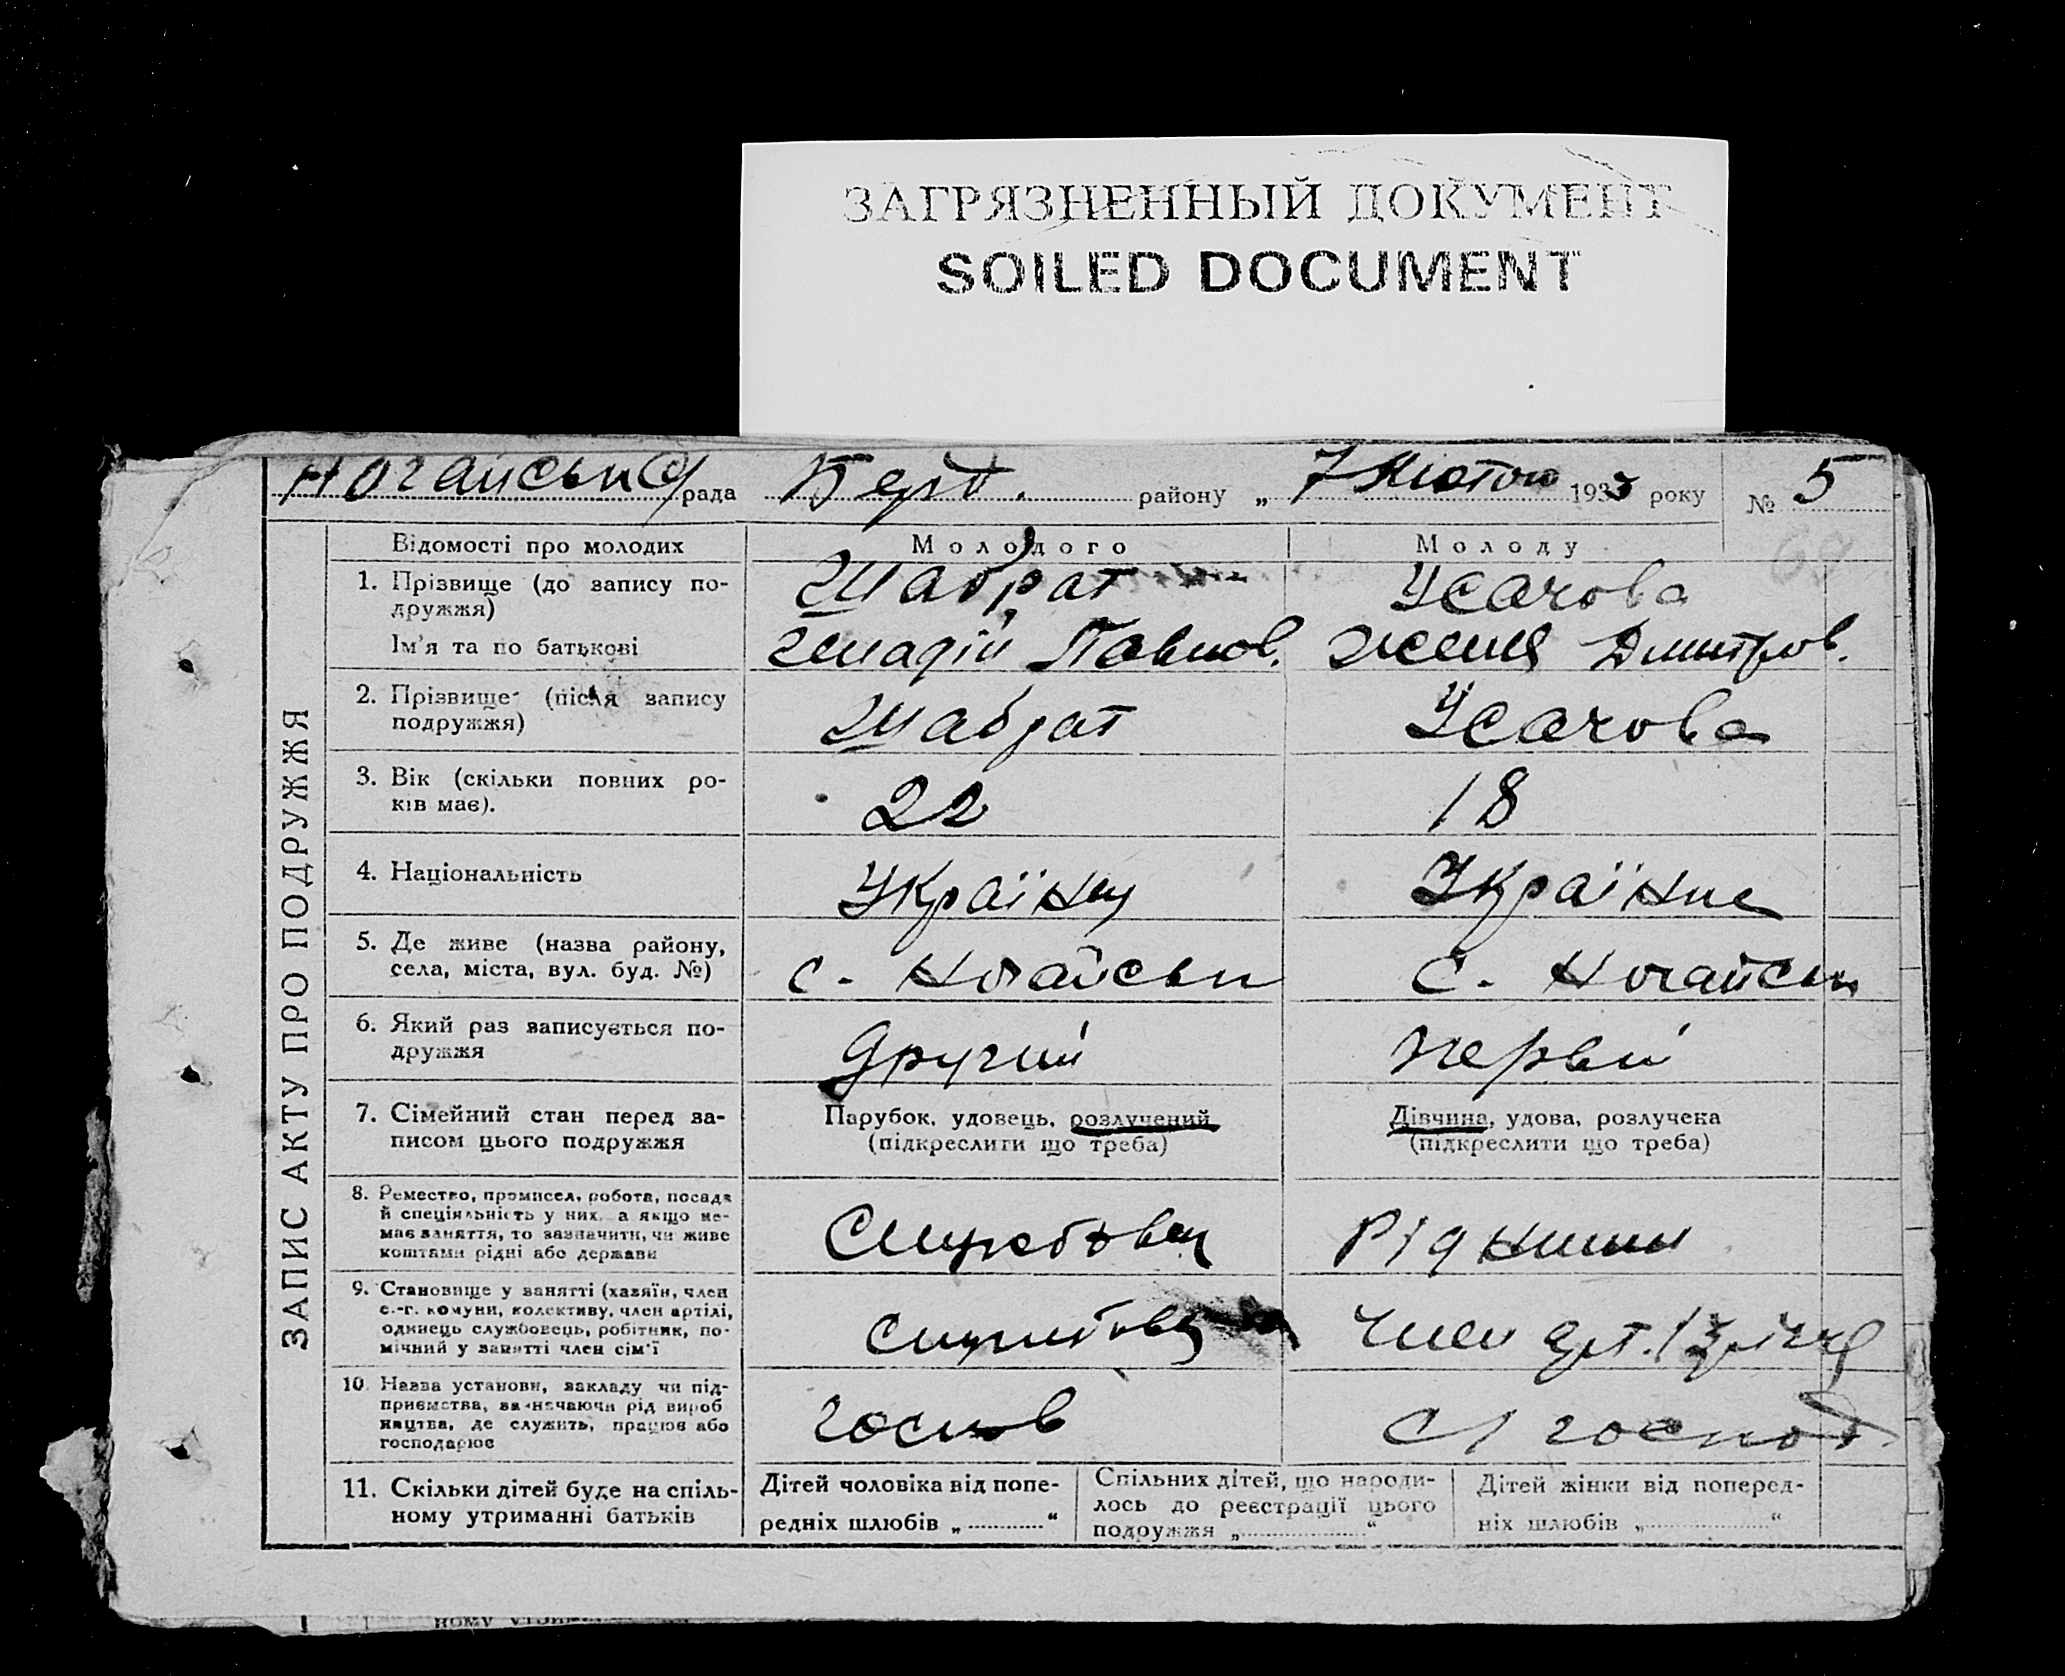 ЗАГРЯЗНЕННЫЙ ДОКУМЕНТ
SOILED DOCUMENT
Ногайська рада Берд. району „ 7 Лютого 1933 року № 5
ЗАПИС АКТУ ПРО ПОДРУЖЖЯ
Відомості про молодих Молодого Молоду
1. Прізвище (до запису по-
дружжя) Шабрат Усачова
Ім'я та по батькові Генадій Павлов. Женя Дмитров.
2. Прізвище (після запису
подружжя) Шабрат Усачова
3. Вік (скільки повних ро-
ків має). 22 18
4. Національність Українц Україне
5. Де живе (назва району,
села, міста, вул. буд. №) с. Ногайськ с. Ногайськ
6. Який раз записується по-
дружжя другий первий
7. Сімейний стан перед за-
писом цього подружжя
Парубок, удовець, розлучений
(підкреслити що треба)
Дівчина, удова, розлучена
(підкреслити що треба)
8. Ремество, промисел, робота, посада
й спеціяльність у них, а якщо не-
має заняття, то зазначити, чи живе
коштами рідні або держави Службовец Рідними
9. Становище у занятті (хазяїн, член
с.-г. комуни, колективу, член артілі,
одинець службовець, робітник, по-
мічний у занятті член сім'ї службовец Член арт.
10. Назва установи, закладу чи під-
приємства, зазначаючи рід вироб
ництва, де служить, працює або
господарює с/господ
11. Скільки дітей буде на спіль-
ному утриманні батьків
Дітей чоловіка від попе-
редніх шлюбів „ “
Спільних дітей, що народи-
лось до реєстрації цього
подружжя „ “
Дітей жінки від поперед-
ніх шлюбів „ “